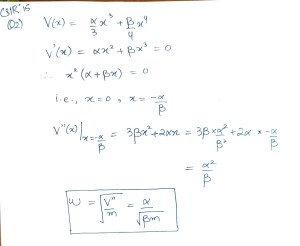 CSIR'15
Q2) V(x) = α/3 x³ + β/4 x⁴
V'(x) = αx² + βx³ = 0
∴ x²(α+βx) = 0
i.e., x=0, x = -α/β
V''(x)|x=-α/β = 3βx²+2αx = 3β×α²/β² + 2α × -α/β
= α²/β
ω = √(V''/m) = α/√(βm)